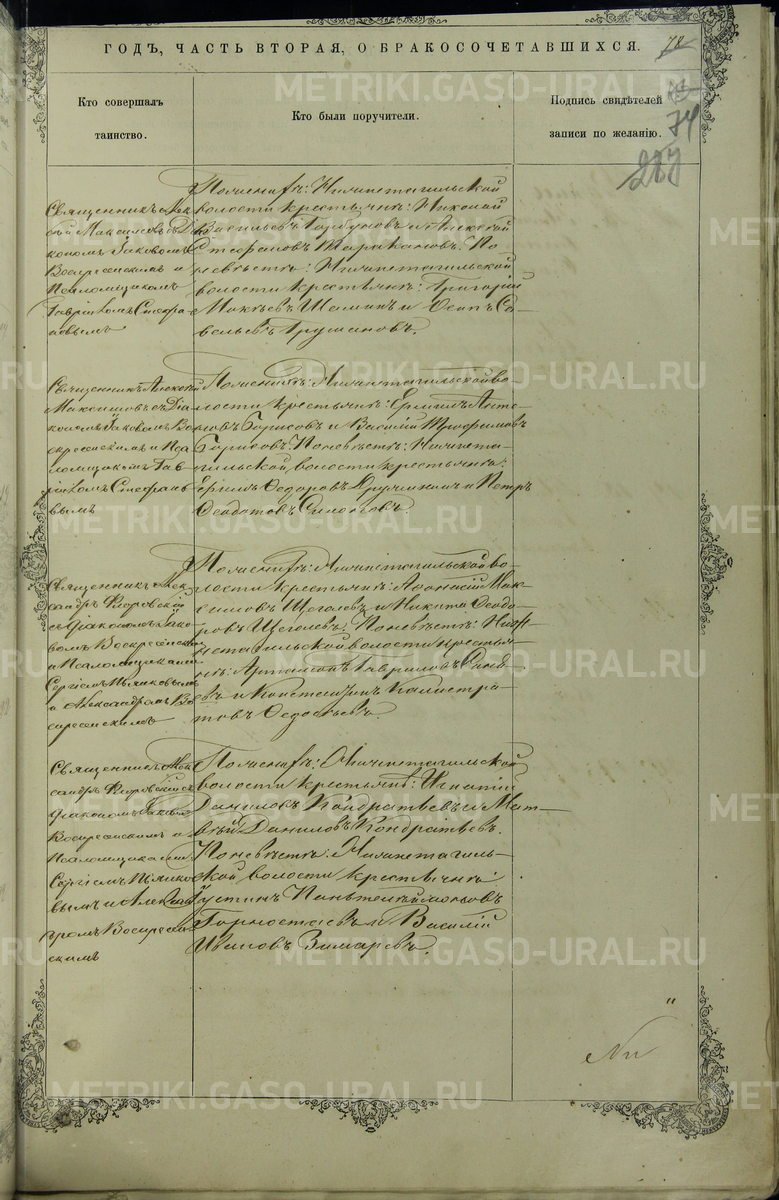 ГОДЪ, ЧАСТЬ ВТОРАЯ, О БРАКОСОЧЕТАВШИХСЯ.
78
74
Кто совершалъ
таинство.
Кто были поручители.
Подпись свидѣтелей
записи по желанію.
Священникъ Алек
сѣй Максимовъ съ Ді
кономъ Іаковомъ
Воскресенскимъ и
Псаломщикомъ
Гавріиломъ Стефа
новымъ
По женихѣ: Нижнетагильской
волости крестьяне: Николай
Васильевъ Горбуновъ и Алексѣй
Стефановъ Тараканов. По
невѣстѣ: Нижнетагильской
волости крестьяне: Григорій
Шаминъ и Осипъ Са-
вельевъ
Священникъ Алексѣй
Максимовъ съ Діа
кономъ Іаковомъ Во
скресенскимъ и Пса
ломщикомъ Гав
ріиломъ Стефано
вымъ
По женихѣ: Нижнетагильской во-
лости крестьяне: Ермилъ Анто-
новъ Борисовъ и Василій Трофимовъ
Борисовъ. По невѣстѣ: Нижнета-
гильской волости крестьяне:
Ермилъ Ѳедоровъ Дружининъ и Петръ
Ѳеодотовъ
Священникъ Алек
сандръ Флоровскій
съ Діакономъ Іако
вомъ Воскресенскимъ
и Псаломщиками
Сергіемъ
и Александромъ Во
скресенскимъ
По женихѣ: Нижнетагильской во-
лости крестьяне: Аѳанасій Мак-
симовъ Щеголевъ и Никита Ѳеодо-
ровъ Щеголевъ. По невѣстѣ: Ниж-
нетагильской волости крестья-
не: Артамонъ Гавриловъ
и Константинъ Калистра-
товъ Ѳедосѣевъ.
Священникъ Алек
сандръ Флоровскій съ
Діакономъ Іаковомъ
Воскресенскимъ и
Псаломщиками
Сергіемъ
и Алексан
дромъ Воскресен
скимъ
По женихѣ: Нижнетагильской
волости крестьяне: Игнатій
Даниловъ Кондратьевъ и Мат-
вѣй Даниловъ Кондратьевъ.
По невѣстѣ: Нижнетагиль-
ской волости крестьяне:
Устинъ
Горностаевъ и Василій
Ивановъ Зимаревъ.
METRIKI.GASO-URAL.RU